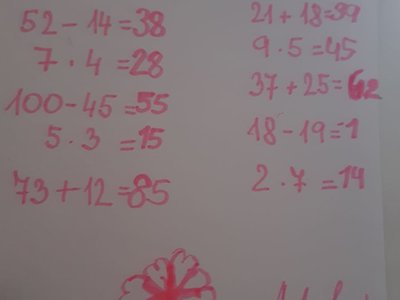 52 - 14 = 38
7 · 4 = 28
100 - 45 = 55
5 · 3 = 15
73 + 12 = 85
21 + 18 = 39
9 · 5 = 45
37 + 25 = 62
18 - 19 = 1
2 · 7 = 14